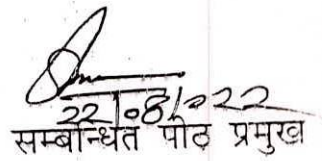 22/08/2022
सम्बन्धित पीठ प्रमुख